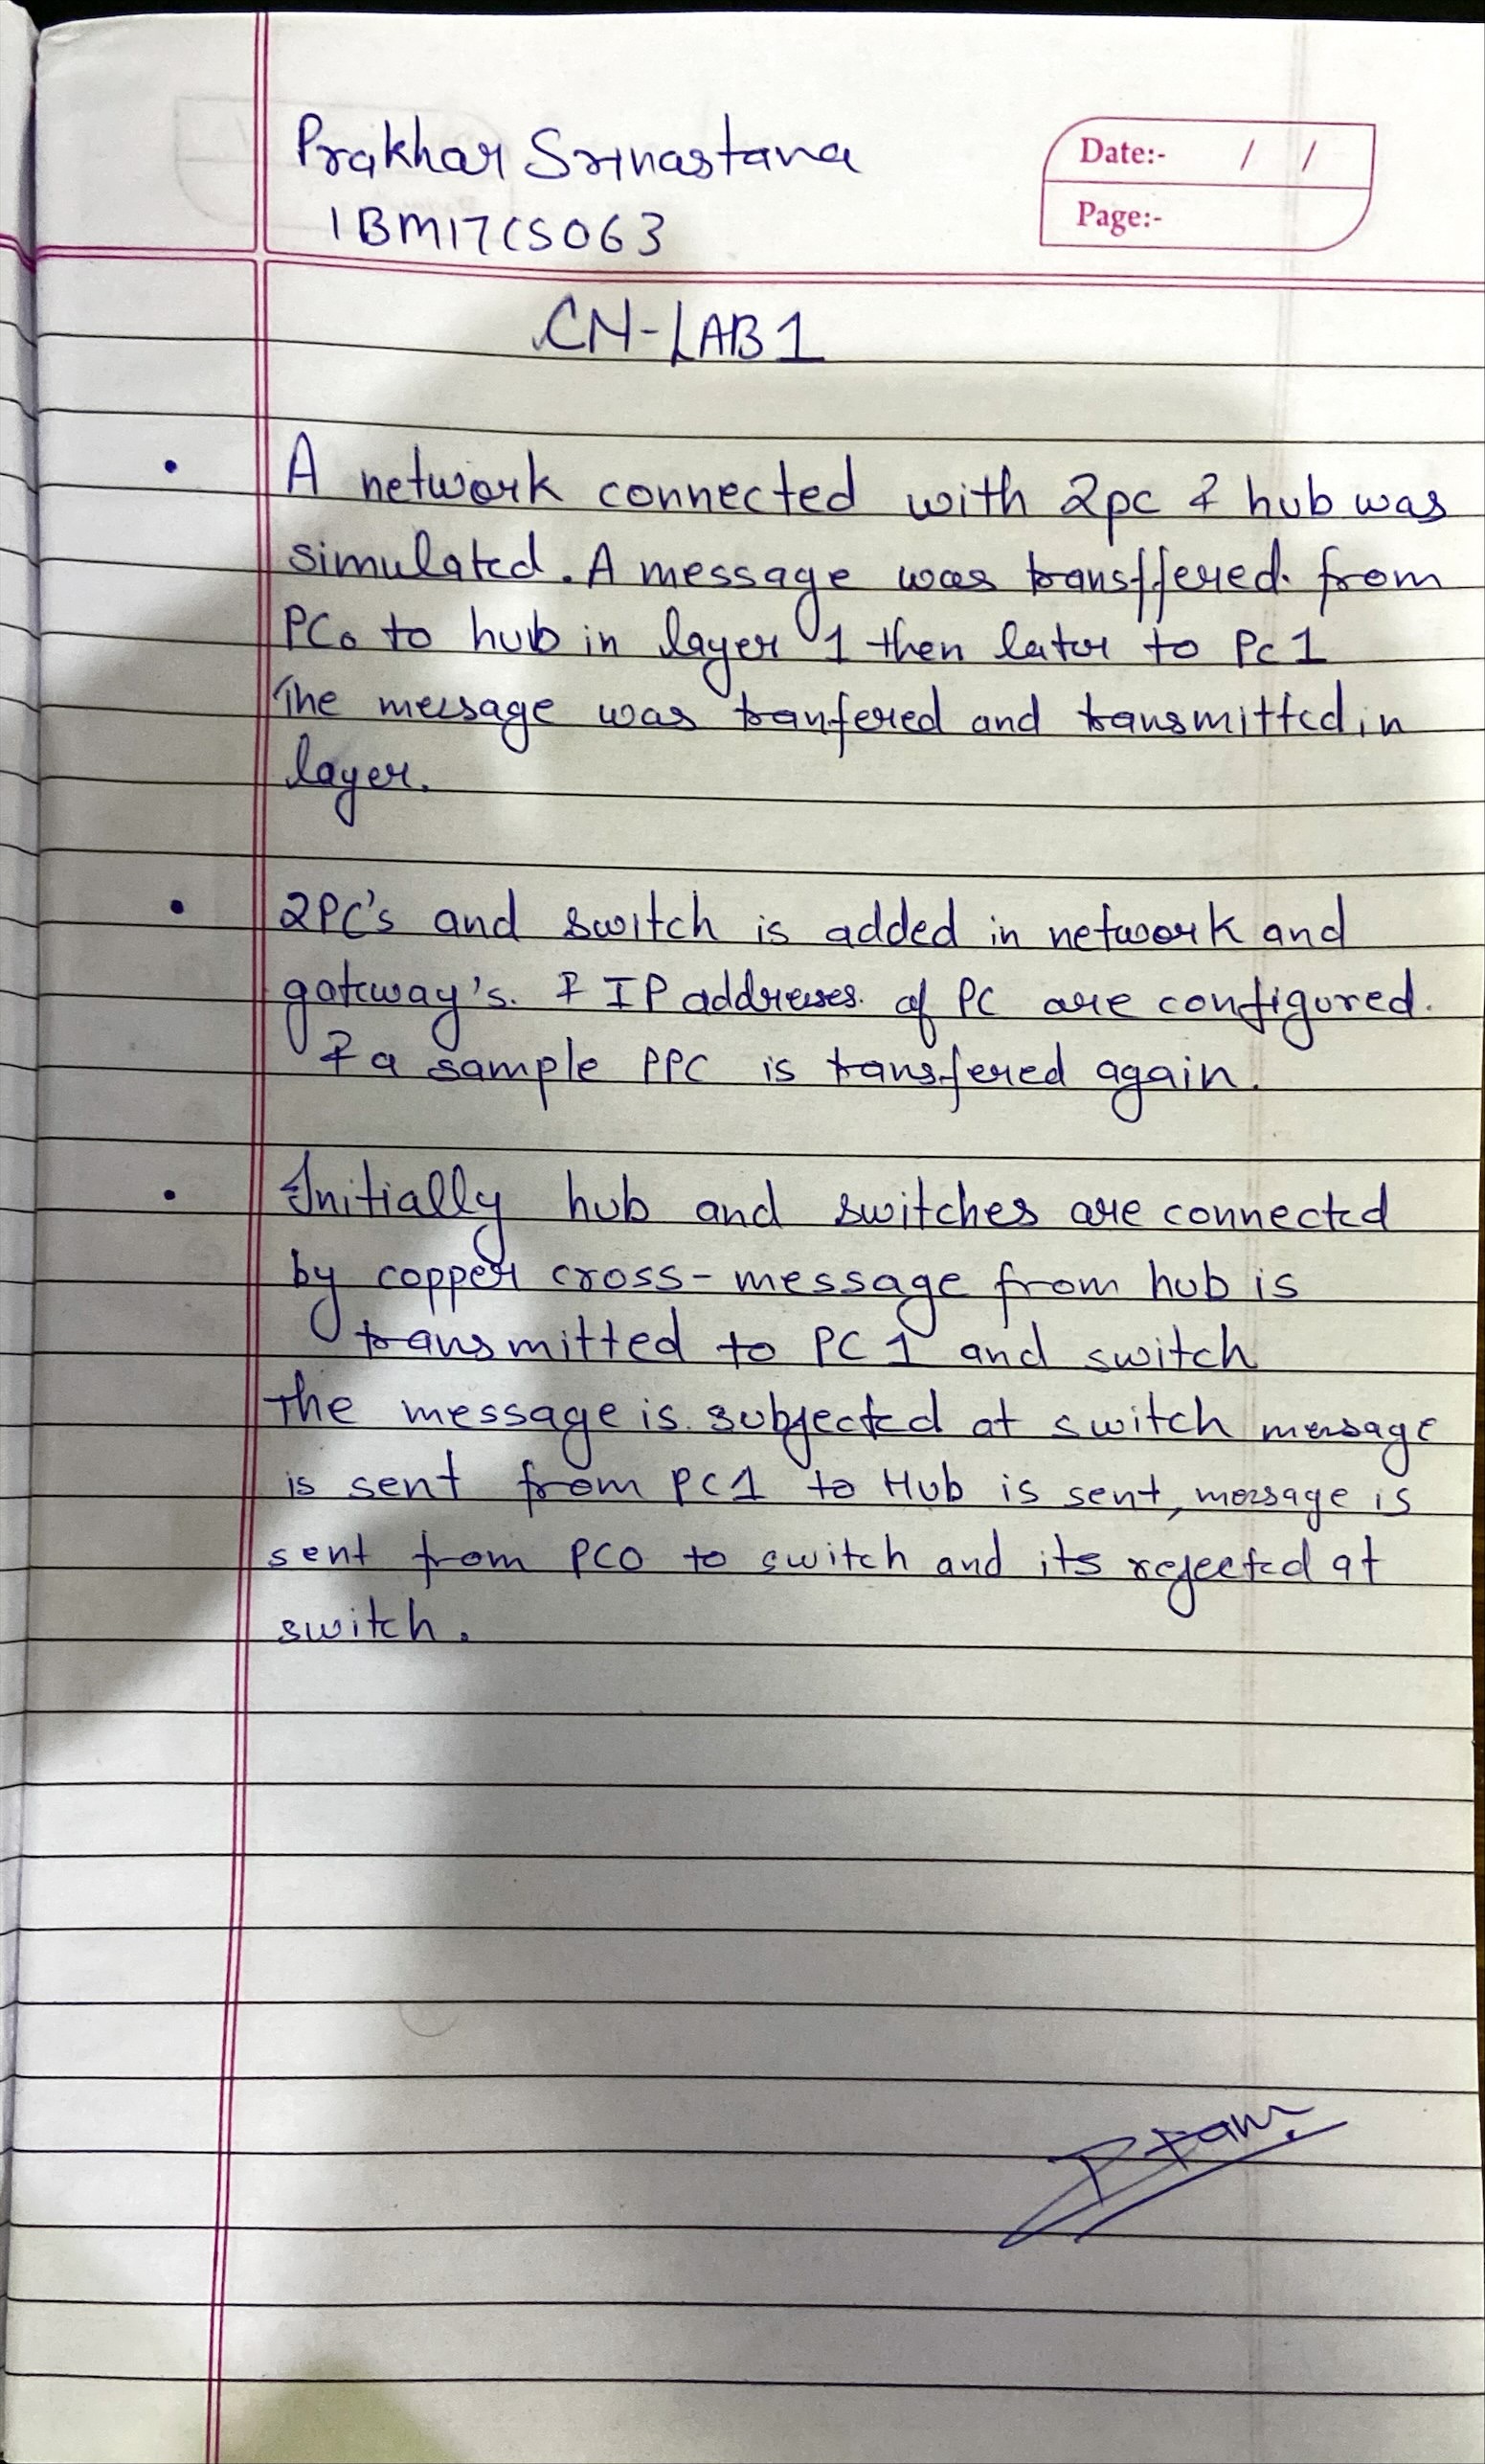 Prakhar Srivastava
1BM17CS063
Date:- / /
Page:-
CN-LAB 1
• A network connected with 2pc & hub was
simulated. A message was transffered. from
PC0 to hub in layer 1 then later to Pc 1
The message was tranfered and transmitted in
layer.
• 2PC's and switch is added in network and
gateway's. & IP addresses. of PC are configured.
& a sample PPC is transfered again.
• Initially hub and switches are connected
by copper cross-message from hub is
transmitted to PC 1 and switch
The message is. subjected at switch message
is sent from PC1 to Hub is sent, message is
sent from PC0 to switch and its rejected at
switch.